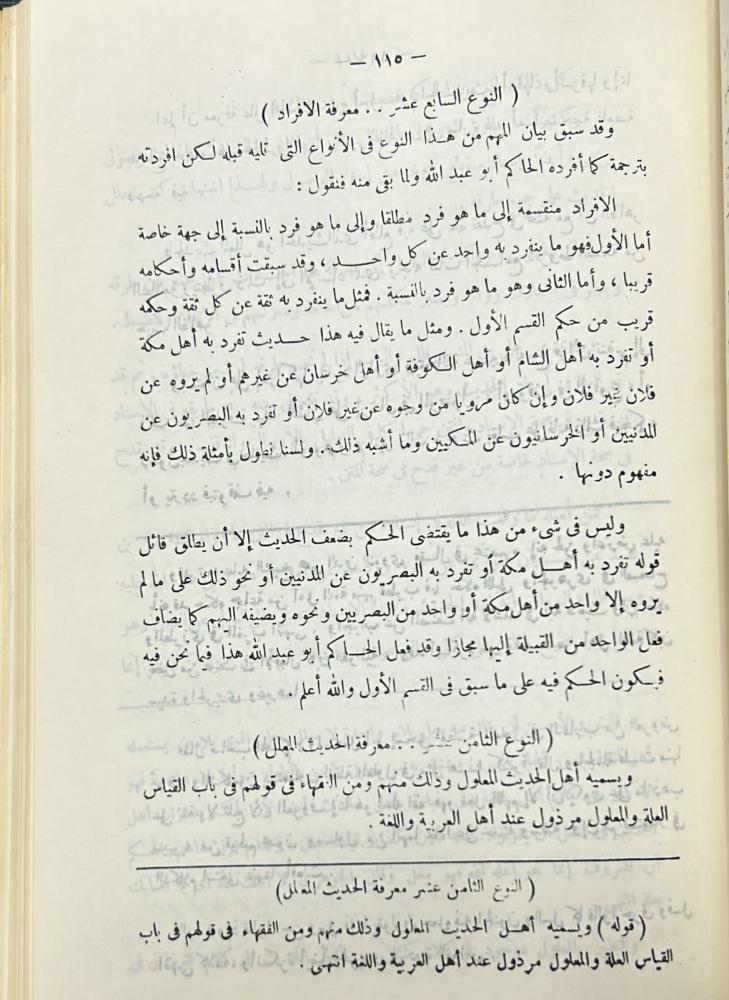 — ١١٥ —
( النوع السابع عشر . . معرفة الافراد )
وقد سبق بيان المهم من هذا النوع فى الأنواع التى تليه قبله لكن افردته
بترجمة كما أفرده الحاكم أبو عبد الله ولما بقى منه فنقول :
الافراد منقسمة إلى ما هو فرد مطلقا وإلى ما هو فرد بالنسبة إلى جهة خاصة
أما الأول فهو ما ينفرد به واحد عن كل واحد ، وقد سبقت أقسامه وأحكامه
قريبا ، وأما الثانى وهو ما هو فرد بالنسبة . فمثل ما ينفرد به ثقة عن كل ثقة وحكمه
قريب من حكم القسم الأول . ومثل ما يقال فيه هذا حديث تفرد به أهل مكة
أو تفرد به أهل الشام أو أهل الكوفة أو أهل خرسان عن غيرهم أو لم يروه عن
فلان غير فلان وإن كان مرويا من وجوه عن غير فلان أو تفرد به البصريون عن
المدنيين أو الخرسانيون عن المكيين وما أشبه ذلك . ولسنا نطول بأمثلة ذلك فإنه
مفهوم دونها .
وليس فى شىء من هذا ما يقتضى الحكم بضعف الحديث إلا أن يطلق قائل
قوله تفرد به أهل مكة أو تفرد به البصريون عن المدنيين أو نحو ذلك على ما لم
يروه إلا واحد من أهل مكة أو واحد من البصريين ونحوه ويضيفه اليهم كما يضاف
فعل الواحد من القبيلة إليها مجازا وقد فعل الحاكم أبو عبد الله هذا فيما نحن فيه
فيكون الحكم فيه على ما سبق فى القسم الأول والله أعلم .
( النوع الثامن عشر . . معرفة الحديث المعلل )
ويسميه أهل الحديث المعلول وذلك منهم ومن الفقهاء فى قولهم فى باب القياس
العلة والمعلول مرذول عند أهل العربية واللغة .
( النوع الثامن عشر معرفة الحديث المعلل )
( قوله ) ويسميه أهل الحديث المعلول وذلك منهم ومن الفقهاء فى قولهم فى باب
القياس العلة والمعلول مرذول عند أهل العربية واللغة انتهى .